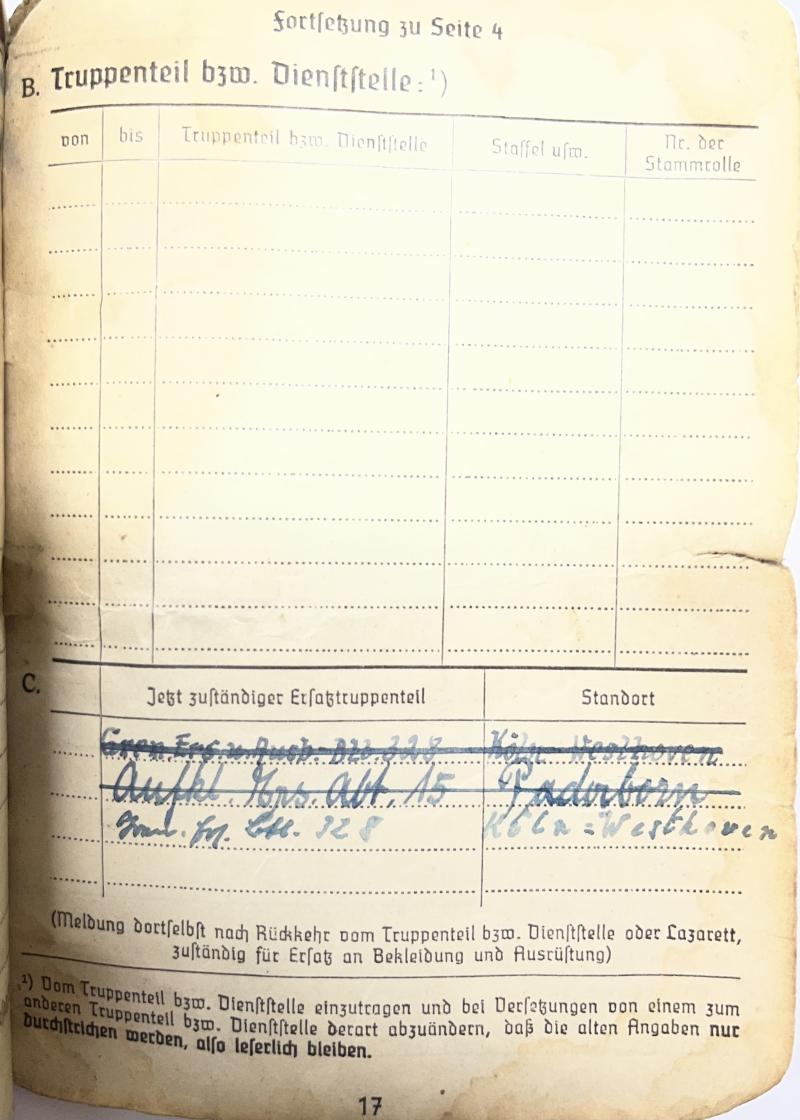 Fortsetzung zu Seite 4
B. Truppenteil bzw. Dienststelle:¹)
von bis Truppenteil bzw. Dienststelle Staffel usw. Nr. der Stammrolle
C. Jetzt zuständiger Ersatztruppenteil Standort
Gren. Ers. u. Ausb. Btl. 328 Köln-Westhoven
Aufkl. Ers. Abt. 15 Paderborn
Gren. Ers. Btl. 328 Köln=Westhoven
(Meldung dortselbst nach Rückkehr vom Truppenteil bzw. Dienststelle oder Lazarett,
zuständig für Ersatz an Bekleidung und Ausrüstung)
¹) Vom Truppenteil bzw. Dienststelle einzutragen und bei Versetzungen von einem zum
anderen Truppenteil bzw. Dienststelle derart abzuändern, daß die alten Angaben nur
durchstrichen werden, also leserlich bleiben.
17